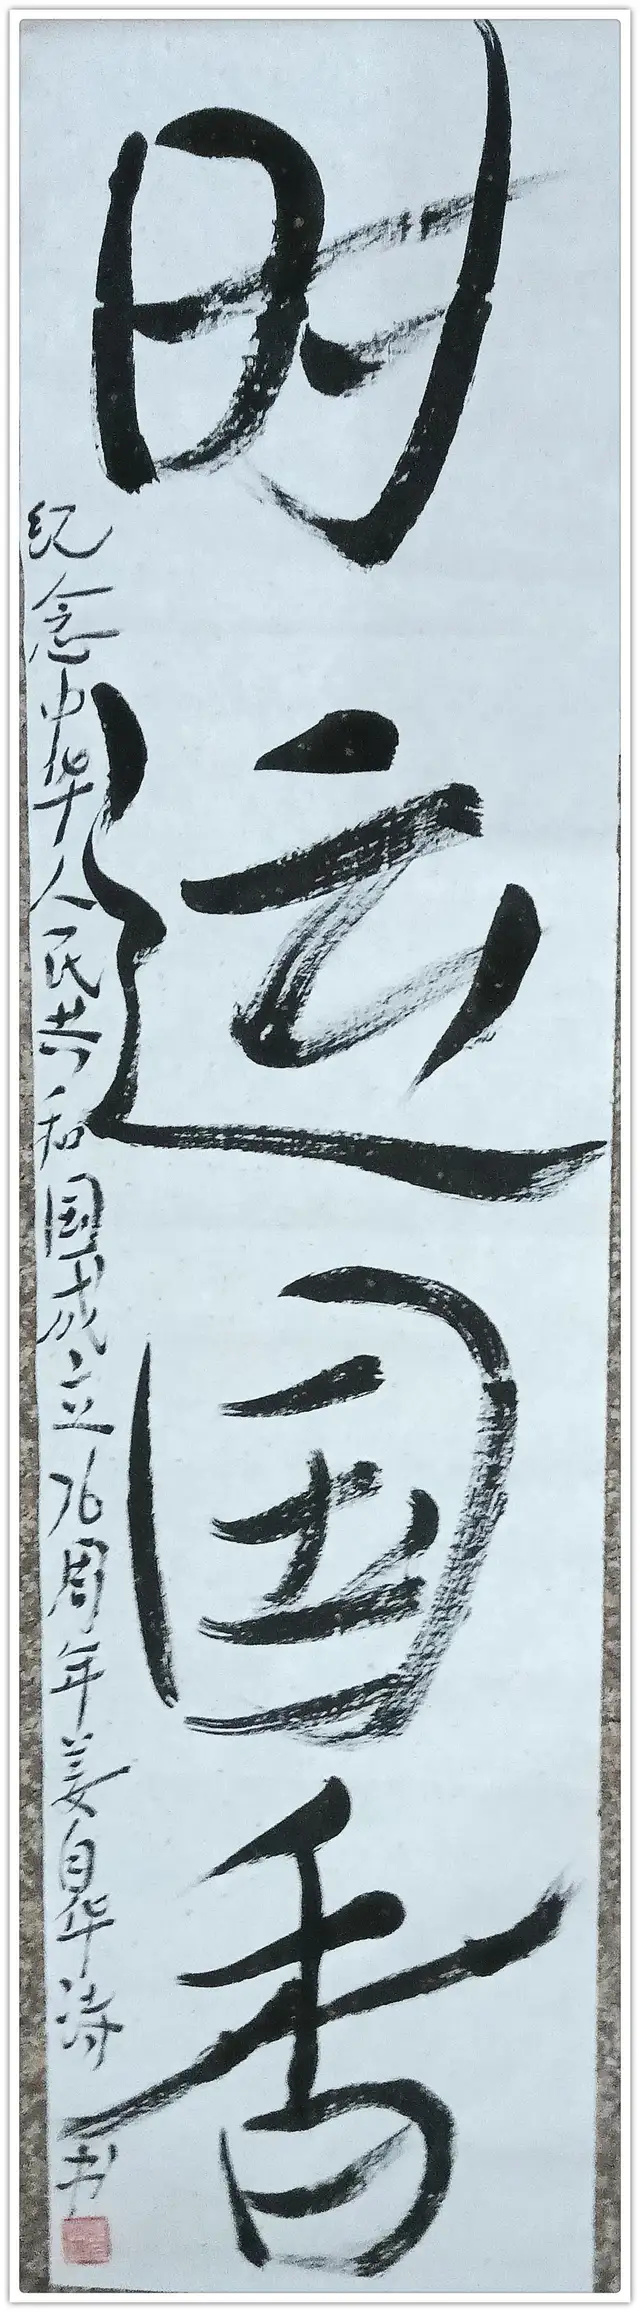 时运国香
纪念中华人民共和国成立76周年姜自华诗书